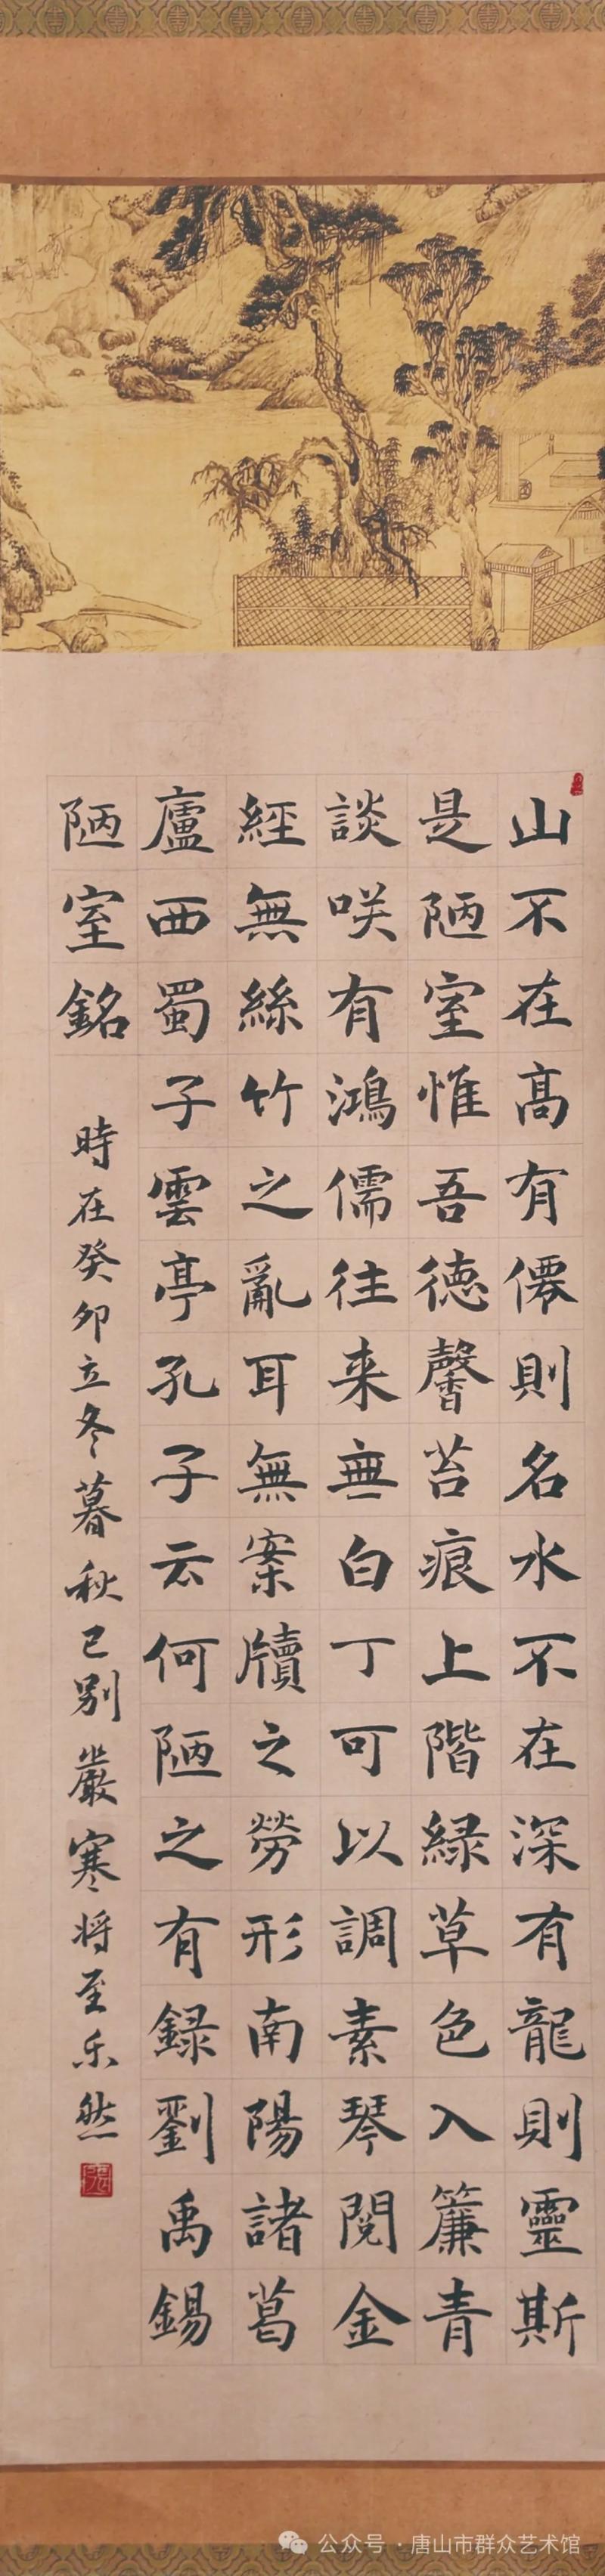 山不在高有僊則名水不在深有龍則靈斯
是陋室惟吾德馨苔痕上階緑草色入簾青
談咲有鴻儒往来無白丁可以調素琴閱金
經無絲竹之亂耳無案牘之勞形南陽諸葛
廬西蜀子雲亭孔子云何陋之有録劉禹錫
陋室銘
時在癸卯立冬暮秋已别嚴寒将至乐然
公众号·唐山市群众艺术馆